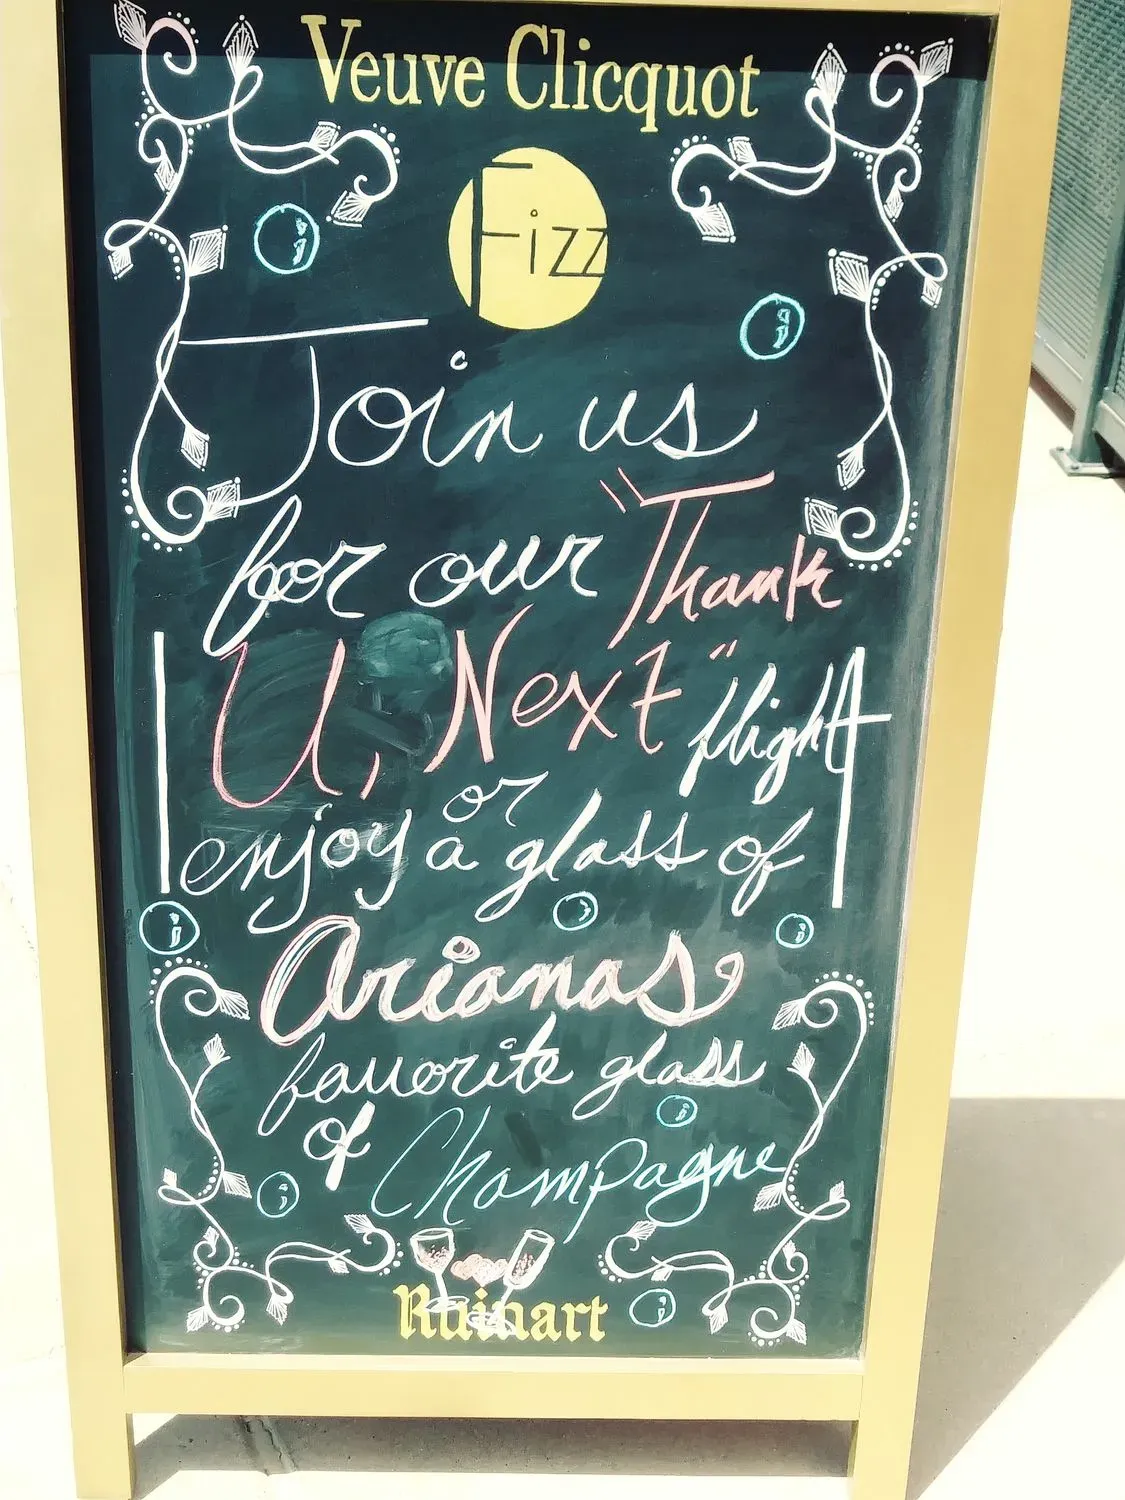 Veuve Clicquot
Fizz
Join us
for our "Thank
U, Next" flight
or
enjoy a glass of
Arianas
favorite glass
of Champagne
Ruinart